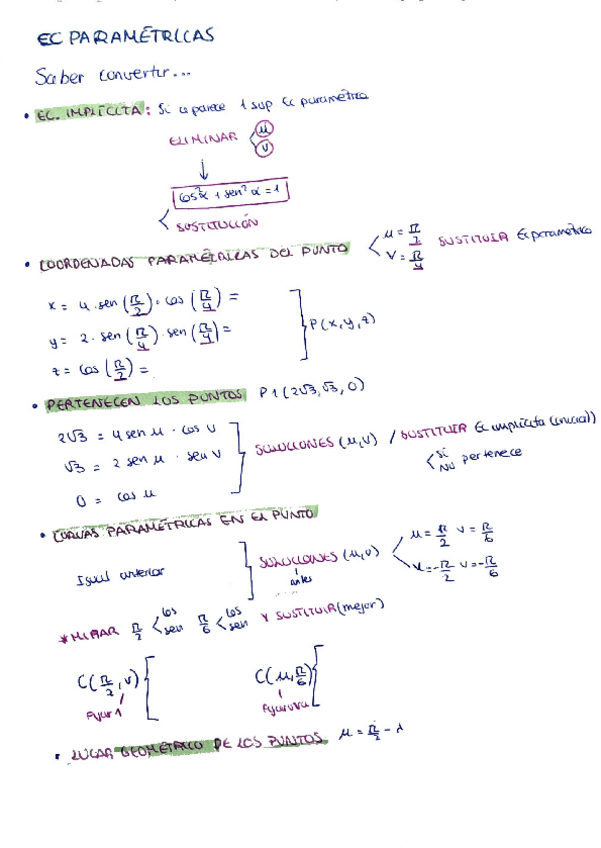 EC PARAMÉTRICAS
Saber convertir...
• EC. IMPLÍCITA: Si aparece 1 sup Ec paramétrica
ELIMINAR < u v
cos²α + sen²α = 1
SUSTITUCIÓN
• COORDENADAS PARAMÉTRICAS DEL PUNTO < u = π/2 v = π/4 SUSTITUIR Ec paramétrica
x = 4 · sen (π/2) · cos (π/4) =
y = 2 · sen (π/4) · sen (π/4) =
z = cos (π/2) =
] P(x, y, z)
• PERTENECEN LOS PUNTOS P1 (2√3, √3, 0)
2√3 = 4 sen u · cos v
√3 = 2 sen u · sen v
0 = cos u
] SOLUCIONES (u, v) / SUSTITUIR Ec implícita (inicial)
< Sí NO pertenece
• CURVAS PARAMÉTRICAS EN EL PUNTO
Igual anterior ] SOLUCIONES (u, v) < u = π/2 v = π/6
antes
u = -π/2 v = -π/6
* MIRAR π/2 < cos sen π/6 < cos sen Y SUSTITUIR (mejor)
C(π/2, v) [
Fijar u
C(u, π/6) [
Fijar v
• LUGAR GEOMÉTRICO DE LOS PUNTOS u = π/2 - λ